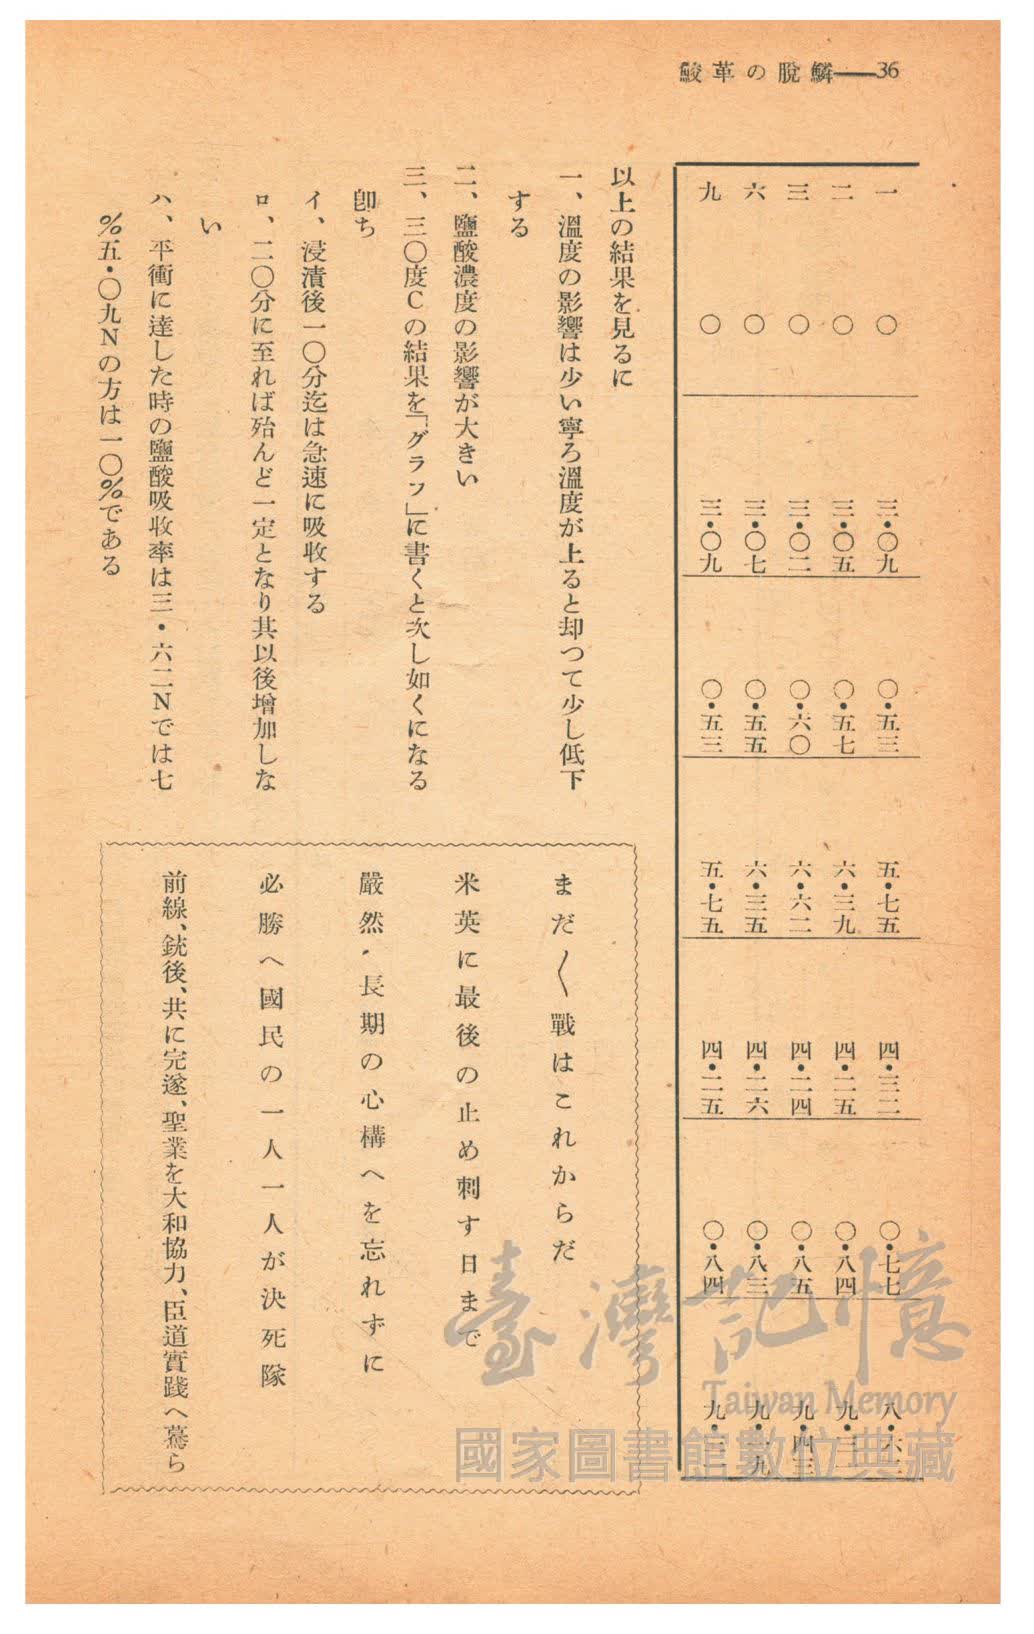 鮫革の脫鱗——36
一〇 三・〇九 〇・五三 五・七五 四・三二 〇・七七 八・六
二〇 三・〇五 〇・五七 六・三九 四・二五 〇・八四 九・
三〇 三・〇二 〇・六〇 六・六二 四・二四 〇・八五 九・四三
六〇 三・〇七 〇・五五 六・三五 四・二六 〇・八三 九・一九
九〇 三・〇九 〇・五三 五・七五 四・二五 〇・八四 九・
以上の結果を見るに
一、溫度の影響は少い寧ろ溫度が上ると却つて少し低下
する
二、鹽酸濃度の影響が大きい
三、三〇度Cの結果を「グラフ」に書くと次し如くになる
卽ち
イ、浸漬後一〇分迄は急速に吸收する
ロ、二〇分に至れば殆んど一定となり其以後增加しな
い
ハ、平衝に達した時の鹽酸吸收率は三・六二Nでは七
%五・〇九Nの方は一〇%である
まだ〱戰はこれからだ
米英に最後の止め刺す日まで
嚴然・長期の心構へを忘れずに
必勝へ國民の一人一人が決死隊
前線、銃後、共に完遂、聖業を大和協力、臣道實踐へ驀ら
臺灣記憶
Taiwan Memory
國家圖書館數位典藏